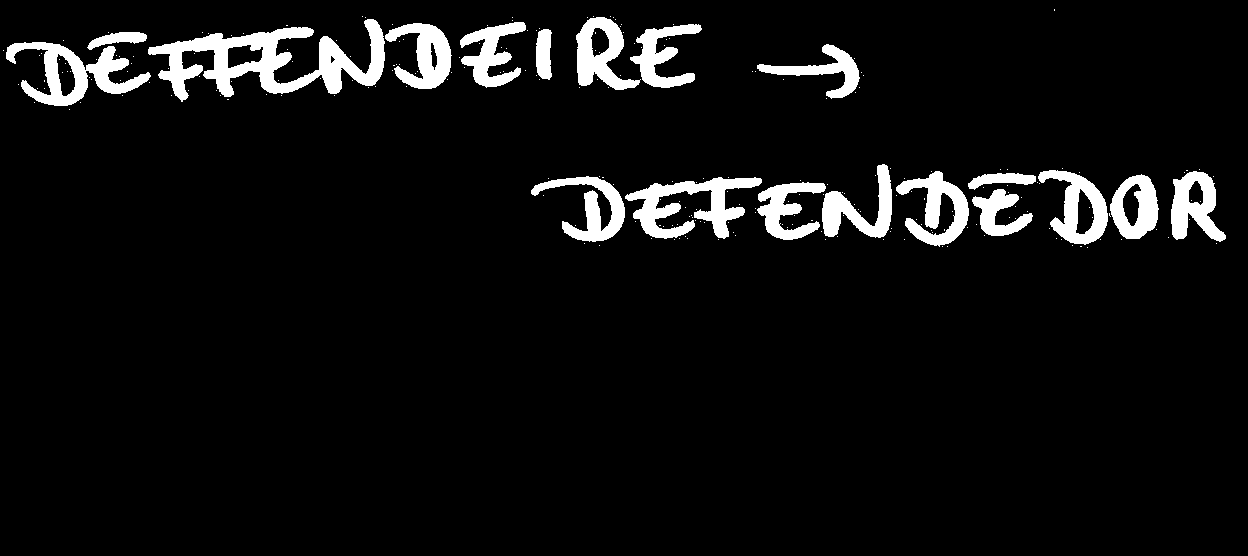 DEFFENDEIRE →
DEFENDEDOR